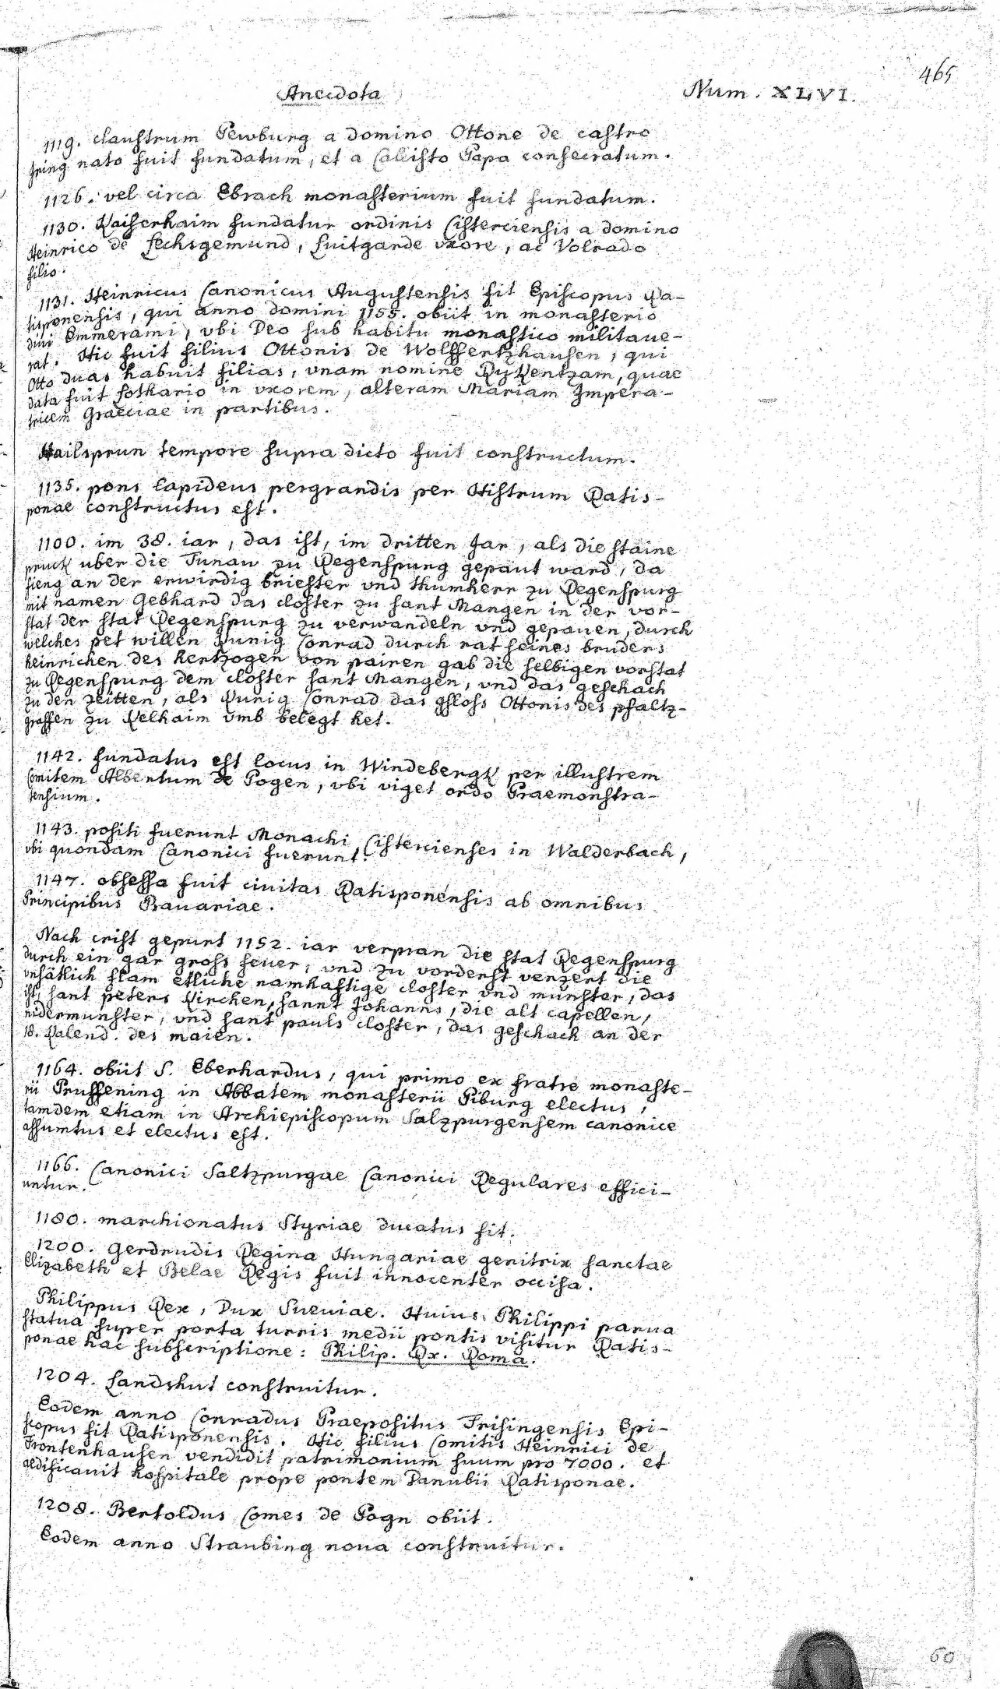 465
Anecdota
Num. XLVI.
1119. claustrum Pewburg a domino Ottone de castro
iring nato fuit fundatum, et a Callisto Papa consecratum.
1126. vel circa Ebrach monasterium fuit fundatum.
1130. Kaiserhaim fundatur ordinis Cisterciensis a domino
Heinrico de Lechsgemund, Luitgarde uxore, ac Volrado
filio.
1131. Heinricus Canonicus Augustensis fit Episcopus Ra-
tisponensis, qui anno domini 1155. obiit in monasterio
divi Emmerami, vbi Deo sub habitu monastico militaue-
rat. Hic fuit filius Ottonis de Wolffertzhausen, qui
Otto duas habuit filias, vnam nomine quae
data fuit Lothario in vxorem, alteram Mariam Impera-
tricem Graeciae in partibus.
Hailsprun tempore supra dicto fuit constructum.
1135. pons lapideus pergrandis per Histrum Ratis-
ponae constructus est.
1100. im 38. iar, das ist, im dritten Jar, als die staine
pruck uber die Tunaw zu Regenspurg gepaut ward, da
fieng an der erwirdig briester vnd thumherr zu Regenspurg
mit namen Gebhard das closter zu sant Mangen in der vor-
stat der stat Regenspurg zu verwandeln vnd gepauen, durch
welches pet willen Kunig Conrad durch rat seines bruders
heinrichen des hertzogen von pairen gab die selbigen vorstat
zu Regenspurg dem closter sant Mangen, vnd das geschach
zu den zeitten, als Kunig Conrad das gsloss Ottonis des pfaltz-
graffen zu Kelhaim vmb belegt het.
1142. fundatus est locus in Windebergk per illustrem
Comitem Albertum de Pogen, vbi viget ordo Praemonstra-
tensium.
1143. positi fuerunt Monachi Cistercienses in Walderbach,
vbi quondam Canonici fuerunt.
1147. obsessa fuit civitas Ratisponensis ab omnibus
Principibus Bauariae.
Nach crist gepurt 1152. iar verpran die stat Regenspurg
durch ein gar gross feuer, vnd zu vorderst verzert die
vnsätlich flam etliche namhaftige closter vnd münster, das
ist, sant peters Kirchen, sannt Johanns, die alt capellen,
nidermunster, vnd sant pauls closter, das geschach an der
18. Kalend. des maien.
1164. obiit S. Eberhardus, qui primo ex fratre monaste-
rii Pruffening in Abbatem monasterii Piburg electus,
tamdem etiam in Archiepiscopum Salzpurgensem canonice
assumtus et electus est.
1166. Canonici Saltzpurgae Canonici Regulares effici-
untur.
1180. marchionatus Styriae ducatus fit.
1200. Gerdrudis Regina Hungariae genitrix sanctae
Elizabeth et Belae Regis fuit innocenter occisa.
Philippus Rex, Dux Sueviae. Huius Philippi parua
statua super porta turris medii pontis visitur Ratis-
ponae hac subscriptione: Philip. Rx. Roma.
1204. Landshut construitur.
Eodem anno Conradus Praepositus Frisingensis Epi-
scopus fit Ratisponensis. Hic filius Comitis Heinrici de
Frontenhausen vendidit patrimonium suum pro 7000. et
aedificauit hospitale prope pontem Danubii Ratisponae.
1208. Bertoldus Comes de Pogn obiit.
Eodem anno Straubing noua construitur.
60